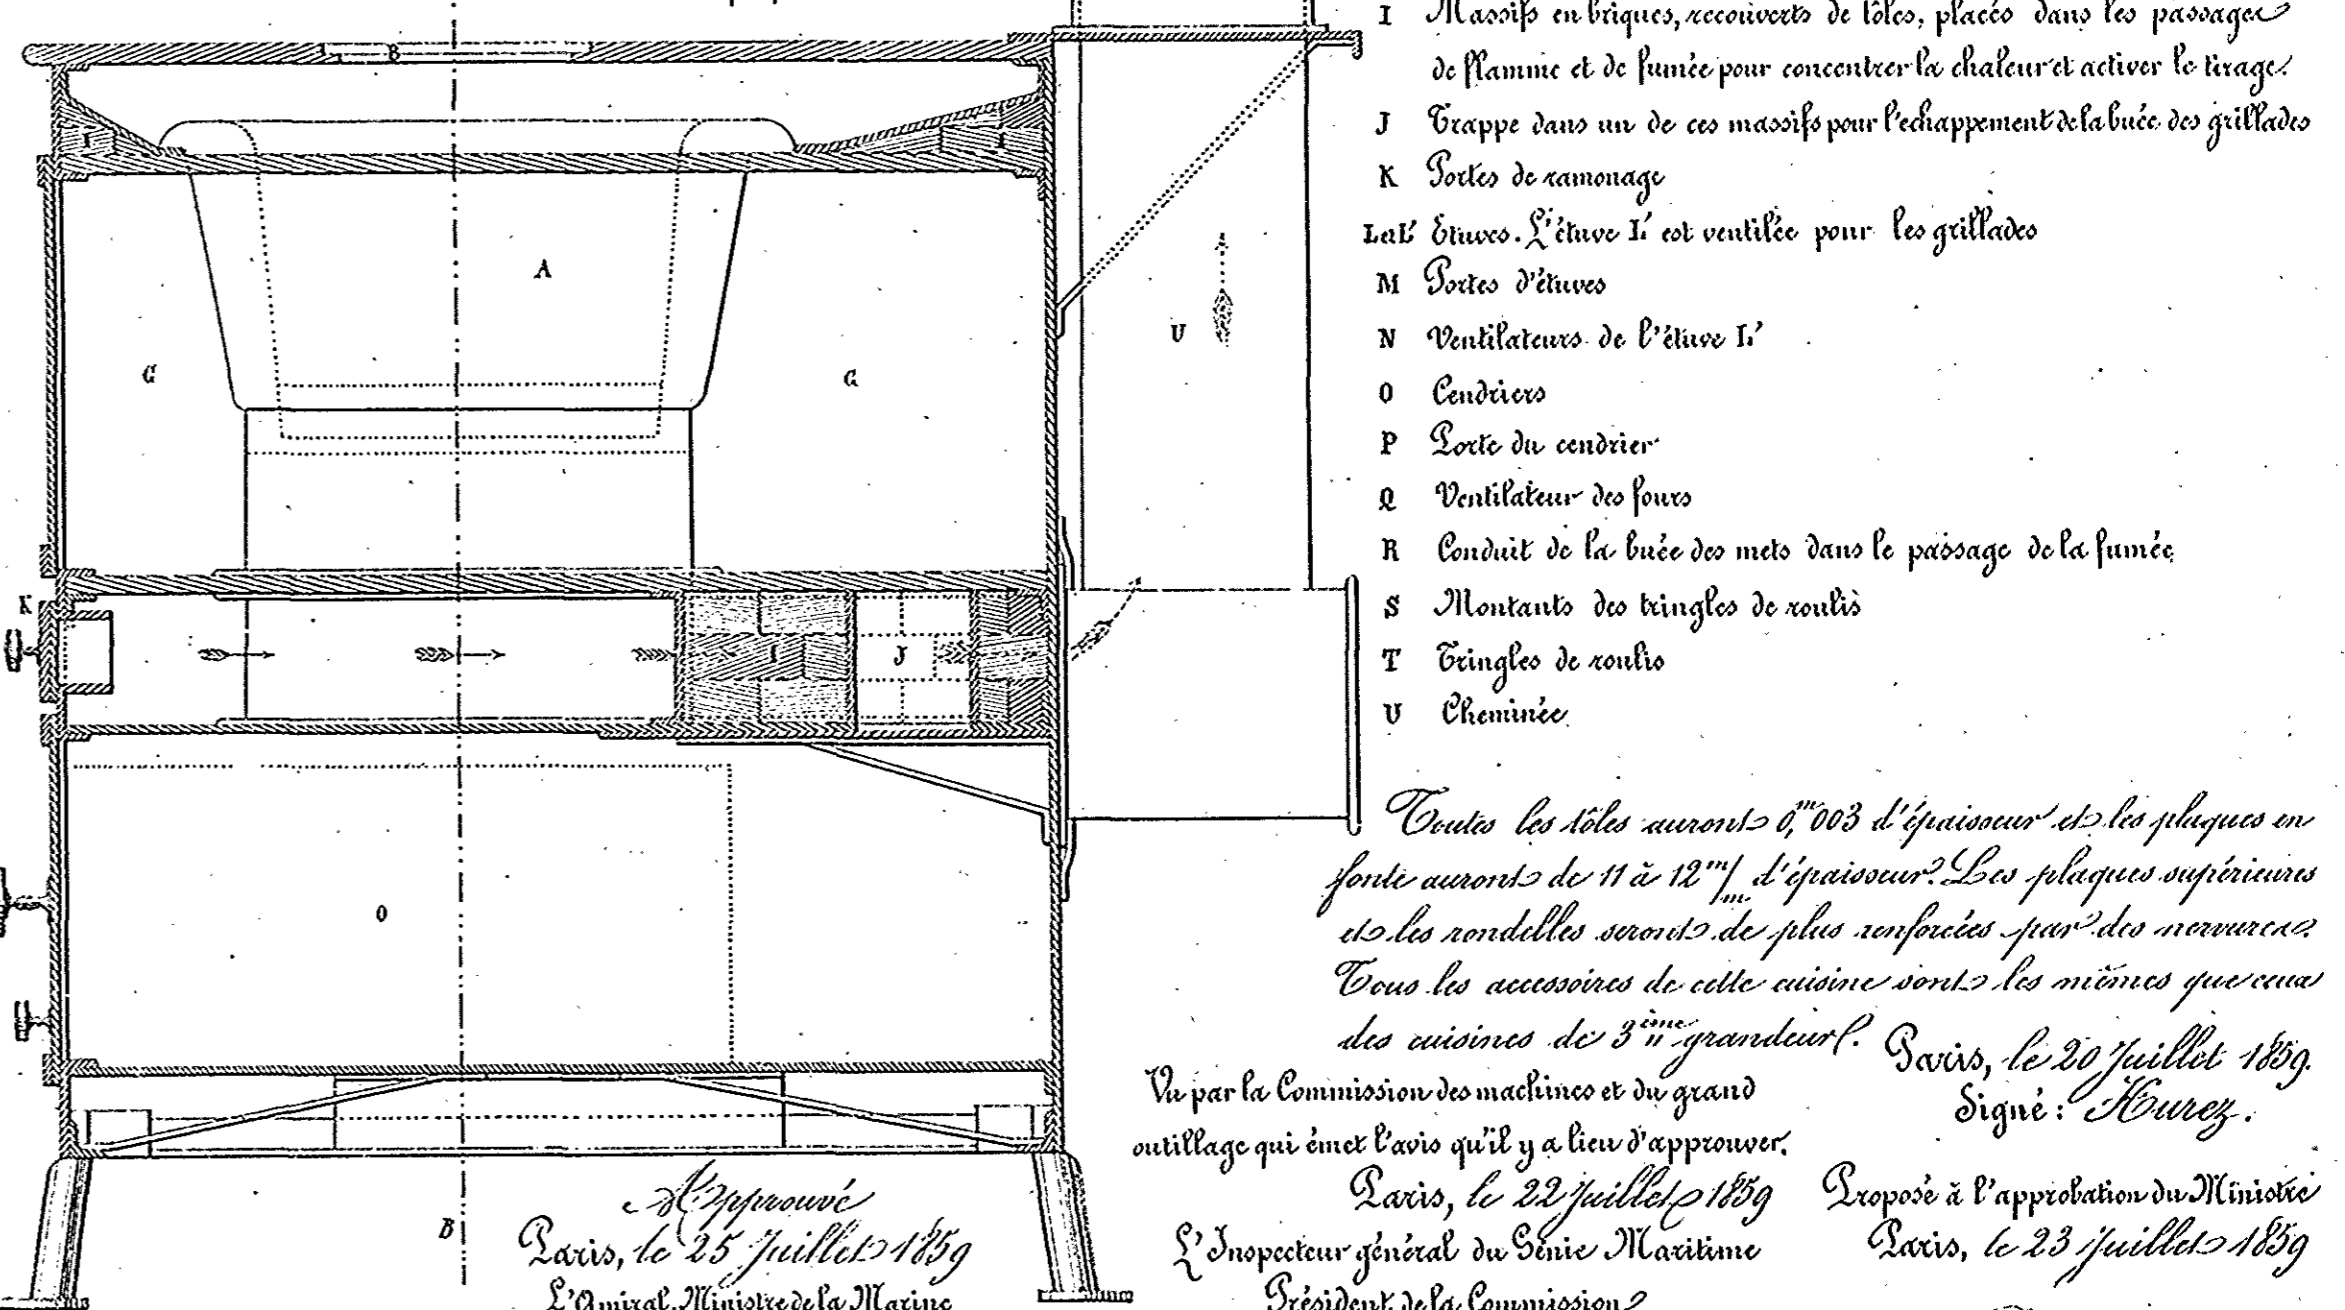 B
I
I
A
G
G
U
K
I
J
O
B
I Massifs en briques, recouverts de tôles, placés dans les passages
de flamme et de fumée pour concentrer la chaleur et activer le tirage.
J Trappe dans un de ces massifs pour l'echappement de la buée des grillades
K Portes de ramonage
L et L' Etuves. L'étuve L' est ventilée pour les grillades
M Portes d'étuves
N Ventilateurs de l'étuve L'
O Cendriers
P Porte du cendrier
Q Ventilateur des fours
R Conduit de la buée des mets dans le passage de la fumée
S Montants des tringles de roulis
T Tringles de roulis
U Cheminée
Toutes les tôles auront 0,ᵐ003 d'épaisseur et les plaques en
fonte auront de 11 à 12 m/m d'épaisseur. Les plaques supérieures
et les rondelles seront de plus renforcées par des nervures.
Tous les accessoires de cette cuisine sont les mêmes que ceux
des cuisines de 3ème grandeur.
Paris, le 20 Juillet 1859.
Signé : Hurez.
Vu par la Commission des machines et du grand
outillage qui émet l'avis qu'il y a lieu d'approuver.
Paris, le 22 Juillet 1859
L'Inspecteur général du Génie Maritime
Président de la Commission
Proposé à l'approbation du Ministre
Paris, le 23 Juillet 1859
Approuvé
Paris, le 25 Juillet 1859
L'Amiral, Ministre de la Marine